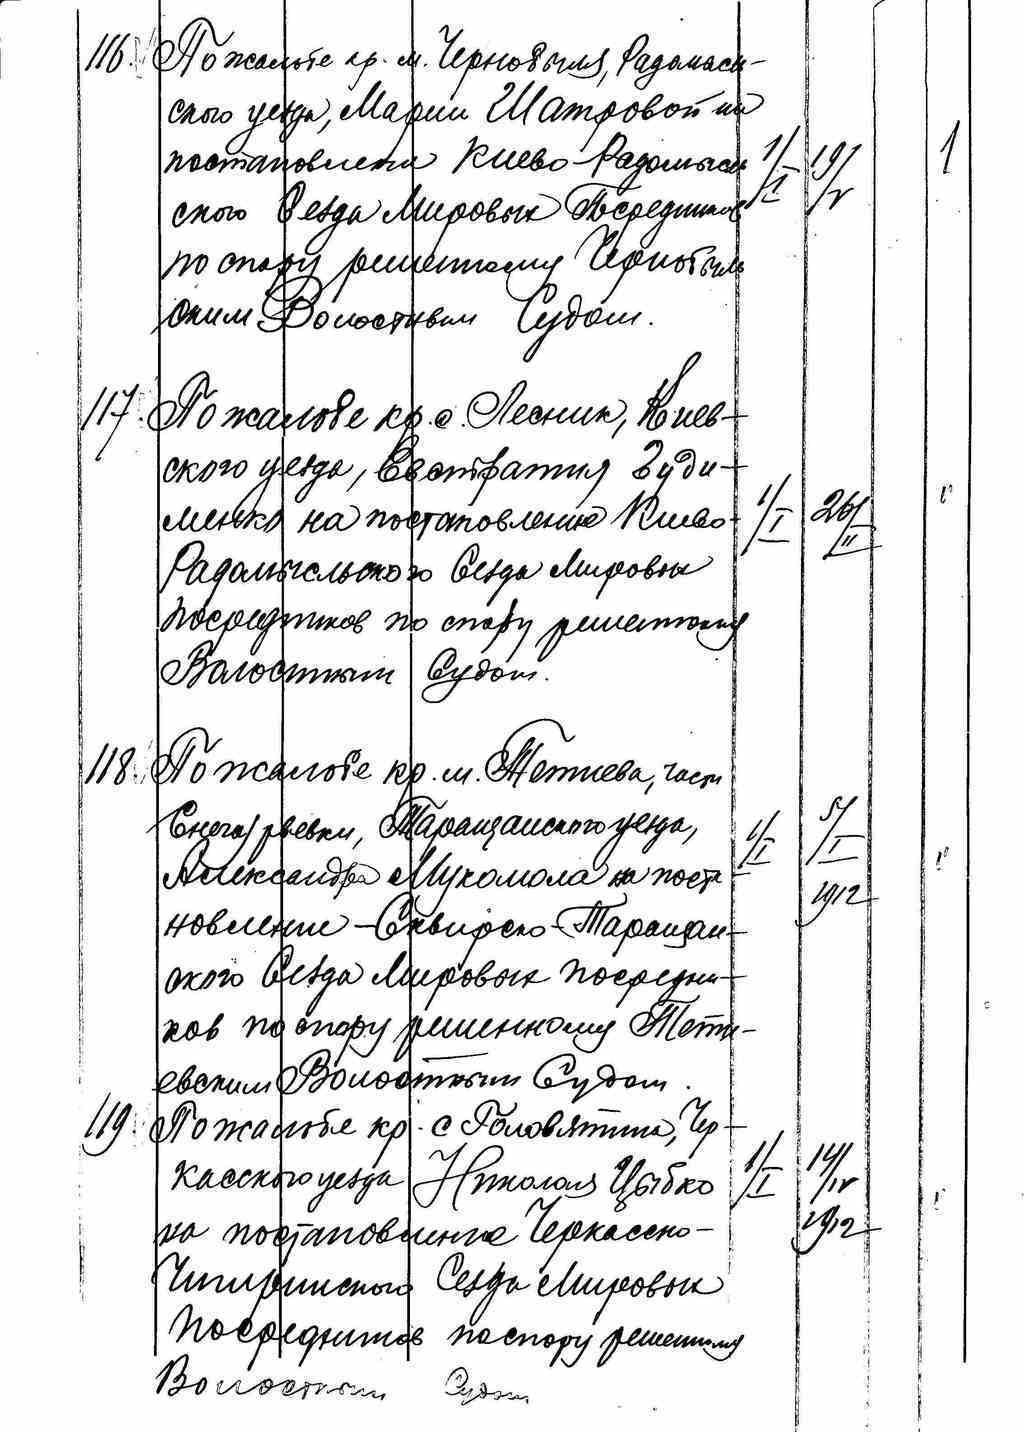 116. По жалобе кр. м. Чернобыля, Радомысл-
ского уезда, Марии Шатровой на
постановление Киево-Радомысл
ского Сезда Мировых Посредников
по спору решенному Чернобыль
ским Волостным Судом.
1/I 19/V 1
117. По жалобе кр. с. Лесник, Киев-
ского уезда, Евстратия Зуди-
менко на постановление Киево-
Радомысльского Сезда Мировых
Посредников по спору решенному
Волостным Судом.
1/I 26/II
118. По жалобе кр. м. Тетиева, части
Снегуревки, Таращанского уезда,
Александра Мукомола на поста
новление Сквирско-Таращан-
ского Сезда Мировых Посредни-
ков по спору решенному Тети-
евским Волостным Судом.
1/I 5/I
1912
119. По жалобе кр. с Головятина, Чер-
касского уезда Николая Цыбко
на постановление Черкасско-
Чигиринского Сезда Мировых
Посредников по спору решенному
Волостным Судом
1/I 14/IV
1912